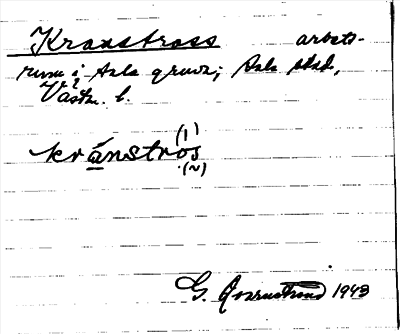 Kranstross arbets-
rum i Sala gruva; Sala stad,
Västm. l.
(1)
krånstros
(~)
G. Qvarnström 1943